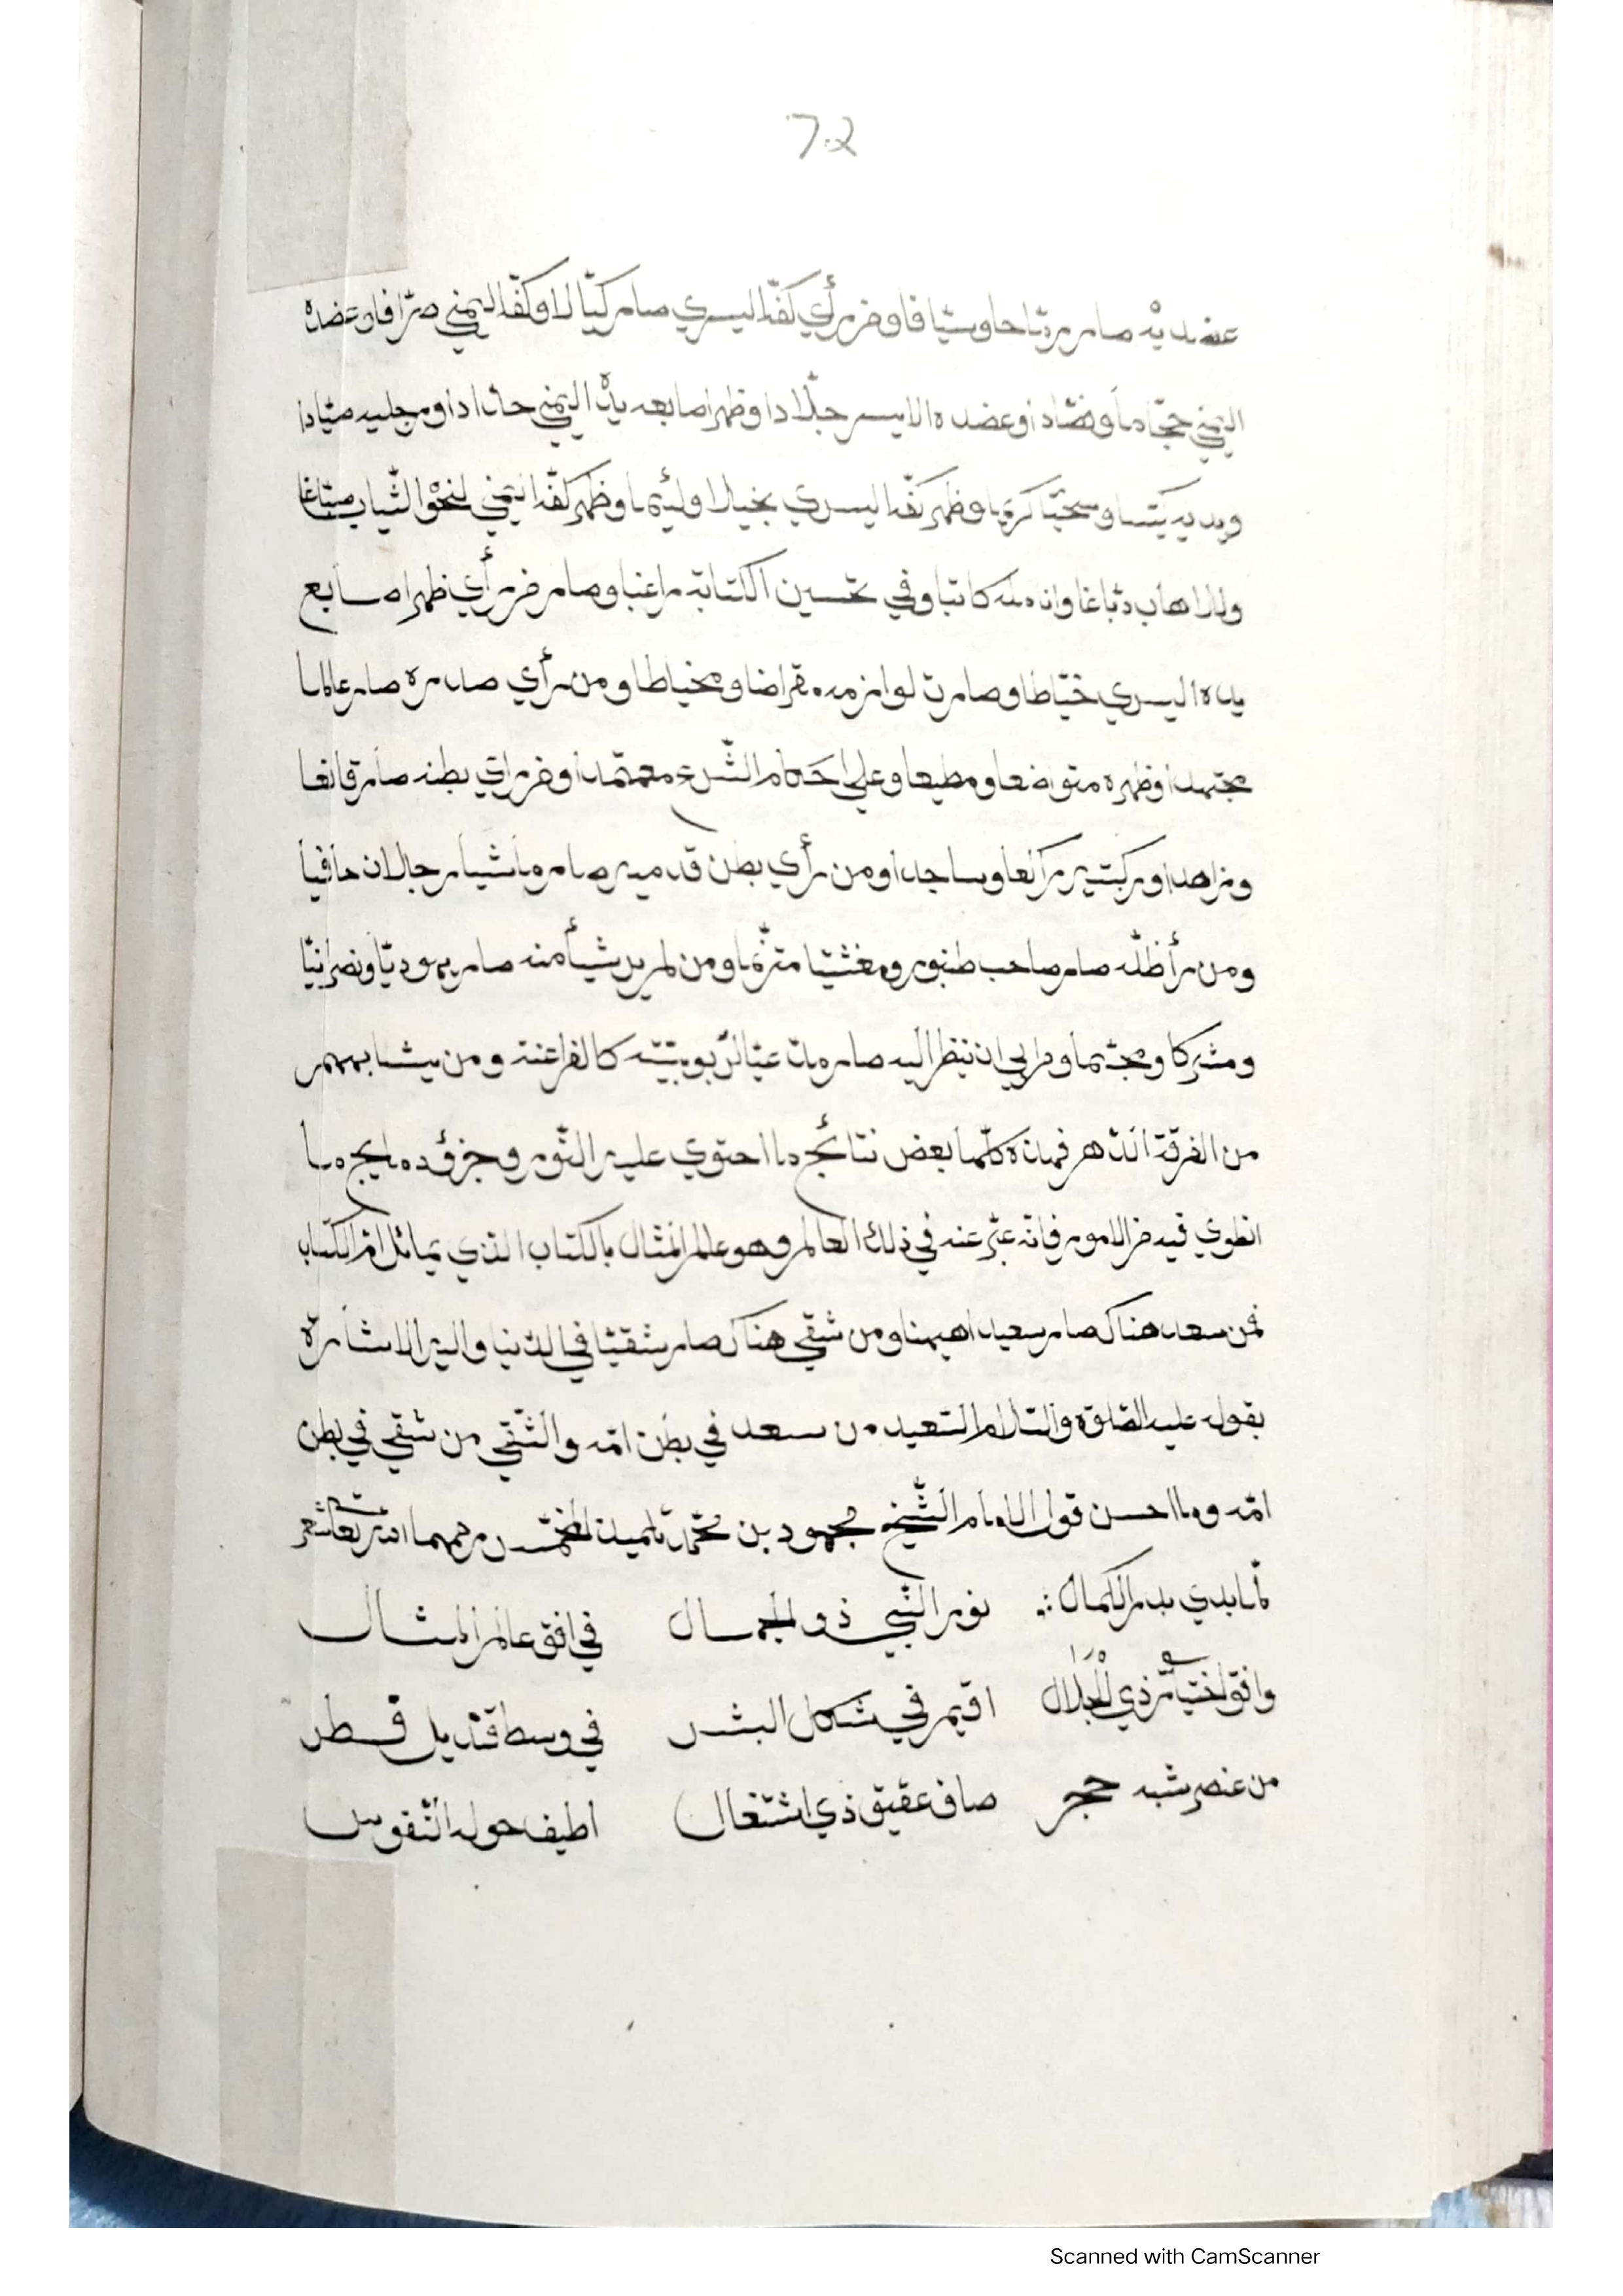 7.2
عضديه صار رمّاحا وسيّافا ومن رأي كفّه اليسري صار كيّالا وكفّه اليمني صرّافا وعضده
اليمني حجّاما وفصّادا وعضده الايسر جلّادا وظهر اصابعه يده اليمني حدّادا ورجليه صيّادا
ويديه كيّسا وسخيّا كريما وظهر كفّه اليسري بخيلا ولئيما وظهر كفّه اليمني لنحو الثّياب صبّاغا
وللاهاب دبّاغا وانامله كاتبا وفي تحسين الكتابة راغبا وصار من رأي ظهر اصابع
يده اليسري خيّاطا وصارت لوازمه مقراضا ومخياطا ومن رأي صدره صار عالما
مجتهدا وظهره متواضعا ومطيعا وعلي احكام الشّرع معتمدا ومن راي بطنه صار قانعا
وزاهدا وركبتيه راكعا وساجدا ومن رأي بطن قدميه صار ماشيا رجالان حافيا
ومن رأ ظلّه صار صاحب طنبور ومغنّيّا مترنّما ومن لم ير شيأ منه صار يهوديّا ونصرانيّا
ومشركا ومجّيما ومن ابي ان ينظر اليه صار مدّعيّا لربوبيّته كالفراعنة ومن يشابههم
من الفرقة فهذه كلّها بعض نتائج ما احتوي عليه النّور وجزؤه مايجر ما
انطوي فيه من الامور فانّه عبّر عنه في ذلك العالم وهو عالم المثال بالكتاب الذي يماثل امّ الكتاب
فمن سعد هناك صار سعيدا هيهنا ومن شقي هناك صار شقيّا في الدّنيا واليه الاشارة
بقوله عليه الصّلوة والسّلام السّعيد من سعد في بطن امّه والشّقي من شقي في بطن
امّه وما احسن قول الامام الشّيخ محمود بن محمّد تلميذ المخمّس رحمهما الله تعا شعر
لمّا بدي بدر الكمال ∴ نور النّبي ذو الجمال في افق عالم المثال
وافق اختيار ذي الجلال اقيم في شكل البشر في وسط قنديل قطر
من عنصر شبه حجر صاف عقيق ذي اشتغال اطيف حوله النّفوس
Scanned with CamScanner